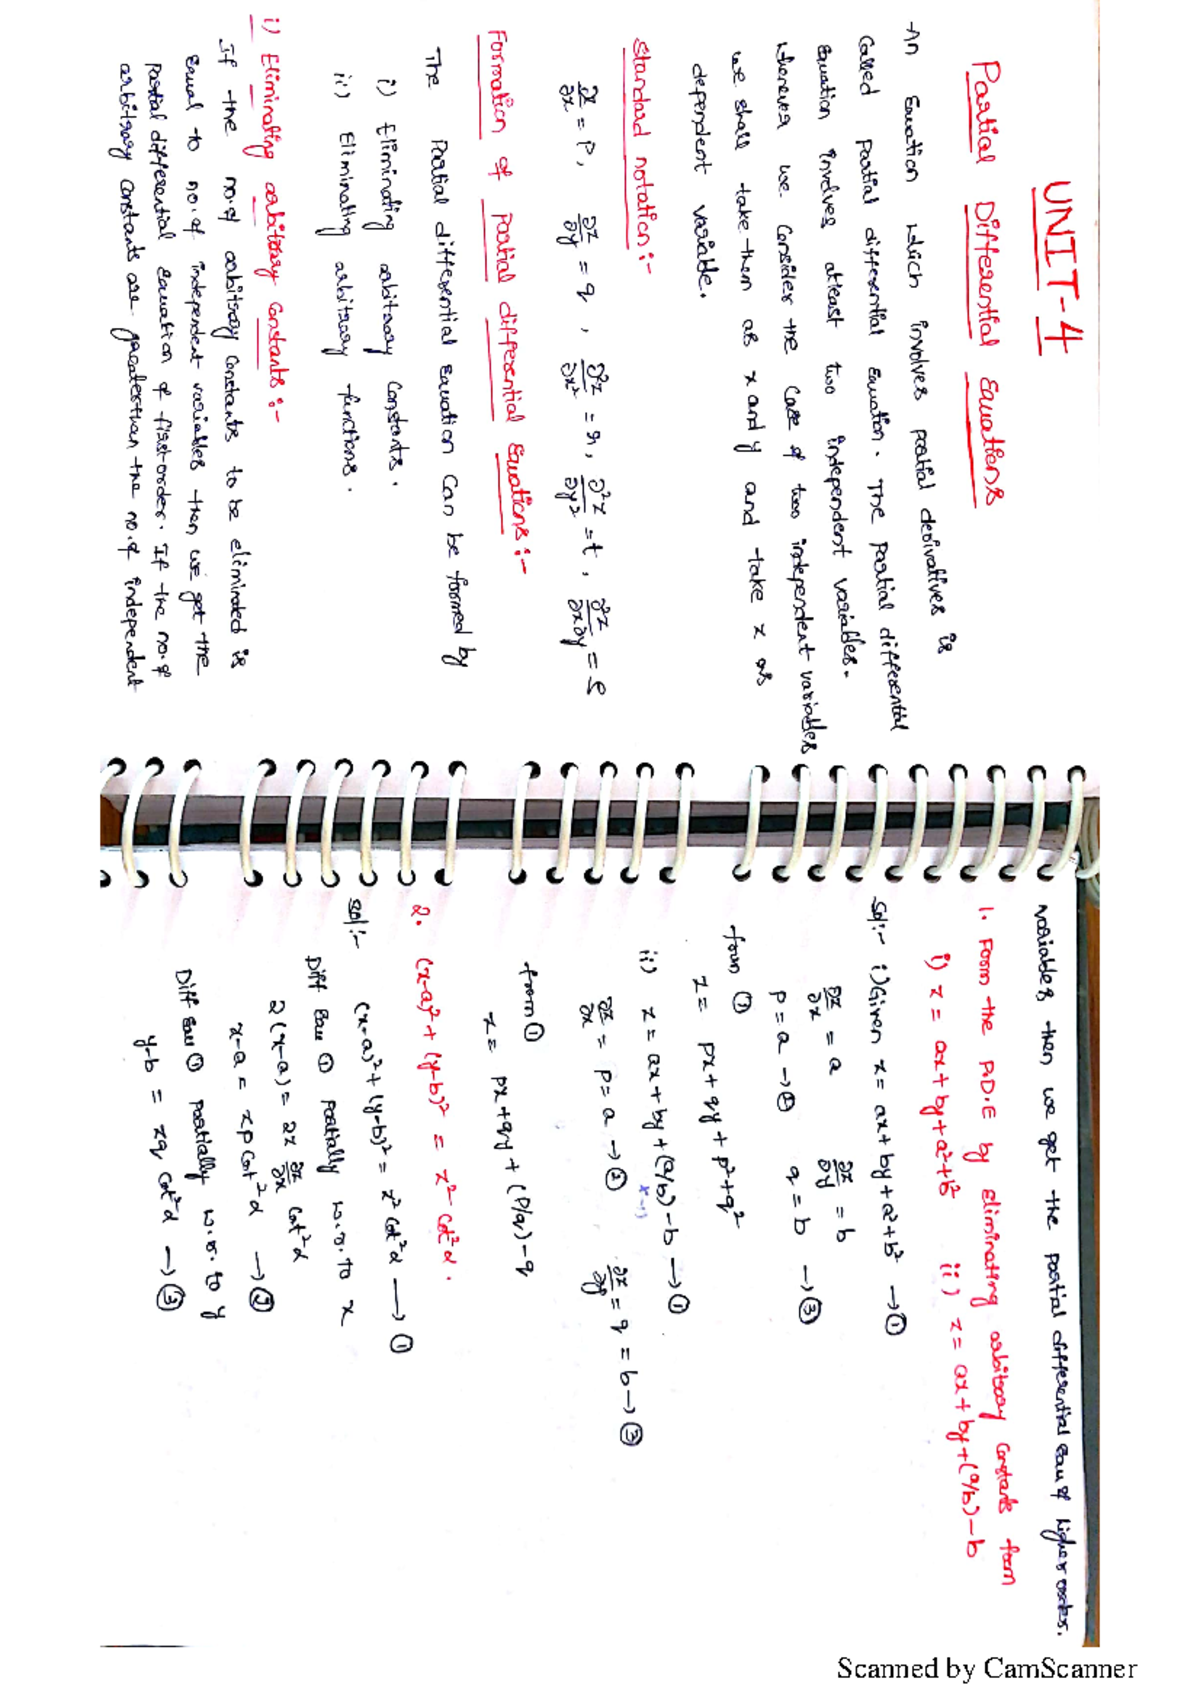 UNIT-4
Partial Differential Equations
An Equation which involves partial derivatives is
called partial differential Equation. The partial differential
Equation involves atleast two independent variables.
whenever we consider the case of two independent variables
we shall take them as x and y and take z as
dependent variable.
Standard notation:-
∂z/∂x = p, ∂z/∂y = q, ∂²z/∂x² = r, ∂²z/∂y² = t, ∂²z/∂x∂y = s
Formation of partial differential Equations:-
The Partial differential Equation can be formed by
i) Eliminating arbitrary constants.
ii) Eliminating arbitrary functions.
i) Eliminating arbitrary constants:-
If the no.of arbitrary constants to be eliminated is
Equal to no.of independent variables then we get the
partial differential Equation of first order. If the no.of
arbitrary constants are greaterthan the no.of independent
variables then we get the partial differential Equ of higher order.
1. Form the P.D.E by eliminating arbitrary constants from
i) z = ax+by+a²+b² ii) z = ax+by+(a/b)-b
Sol:- i) Given z = ax+by+a²+b² → ①
∂z/∂x = a ∂z/∂y = b
p = a → ② q = b → ③
from ①
z = px+qy+p²+q²
ii) z = ax+by+(a/b)-b → ①
∂z/∂x = p = a → ② ∂z/∂y = q = b → ③
from ①
z = px+qy+(p/q)-q
2. (x-a)²+(y-b)² = z² cot²α.
sol:- (x-a)²+(y-b)² = z² cot²α → ①
Diff Equ ① partially w.r.to x
2(x-a) = 2z ∂z/∂x cot²α
x-a = zp cot²α → ②
Diff Equ ① partially w.r.to y
y-b = zq cot²α → ③
Scanned by CamScanner